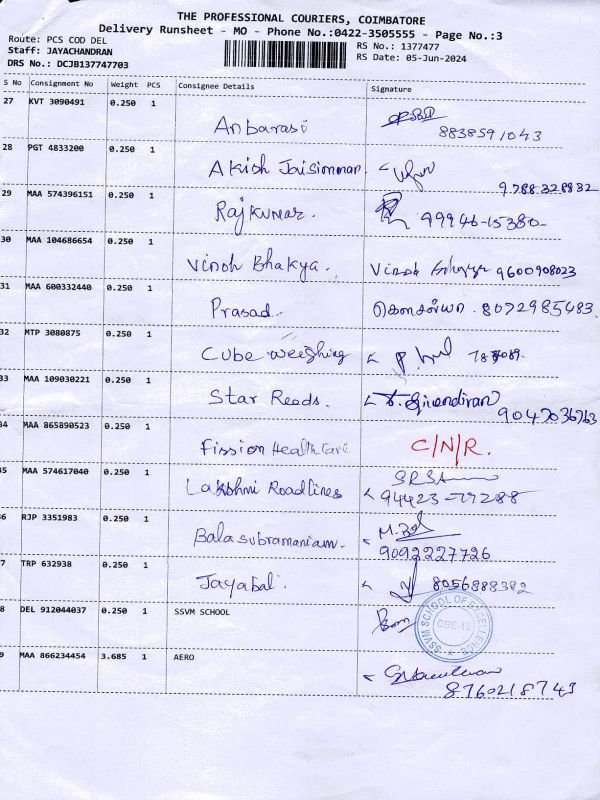 THE PROFESSIONAL COURIERS, COIMBATORE
Delivery Runsheet - MO - Phone No.:0422-3505555 - Page No.:3
Route: PCS COD DEL
Staff: JAYACHANDRAN
DRS No.: DCJB137747703
RS No.: 1377477
RS Date: 05-Jun-2024
S No Consignment No Weight PCS Consignee Details Signature
27 KVT 3090491 0.250 1
Anbarasi
8838591043
28 PGT 4833200 0.250 1
Akish Jaisimman
9788328832
29 MAA 574396151 0.250 1
Rajkumar. 99946-15380-
30 MAA 104686654 0.250 1
Vinoh Bhakya. Vinoh 9600908023
31 MAA 600332440 0.250 1
Prasad. கௌசல்யா. 8072985483.
32 MTP 3080875 0.250 1
Cube weeghing
33 MAA 109030221 0.250 1
Star Reeds.
9047036763
34 MAA 865890523 0.250 1
Fission Health Care C/N/R.
35 MAA 574617040 0.250 1
Lakshmi Roadlines 94423-77288
36 RJP 3351983 0.250 1
Balasubramaniam. M.Bal
9092227726
7 TRP 632938 0.250 1
Jayabal. 8056888382
8 DEL 912044037 0.250 1 SSVM SCHOOL
SSVM SCHOOL OF EXCELLENCE
CBE-15
9 MAA 866234454 3.685 1 AERO
8760218743